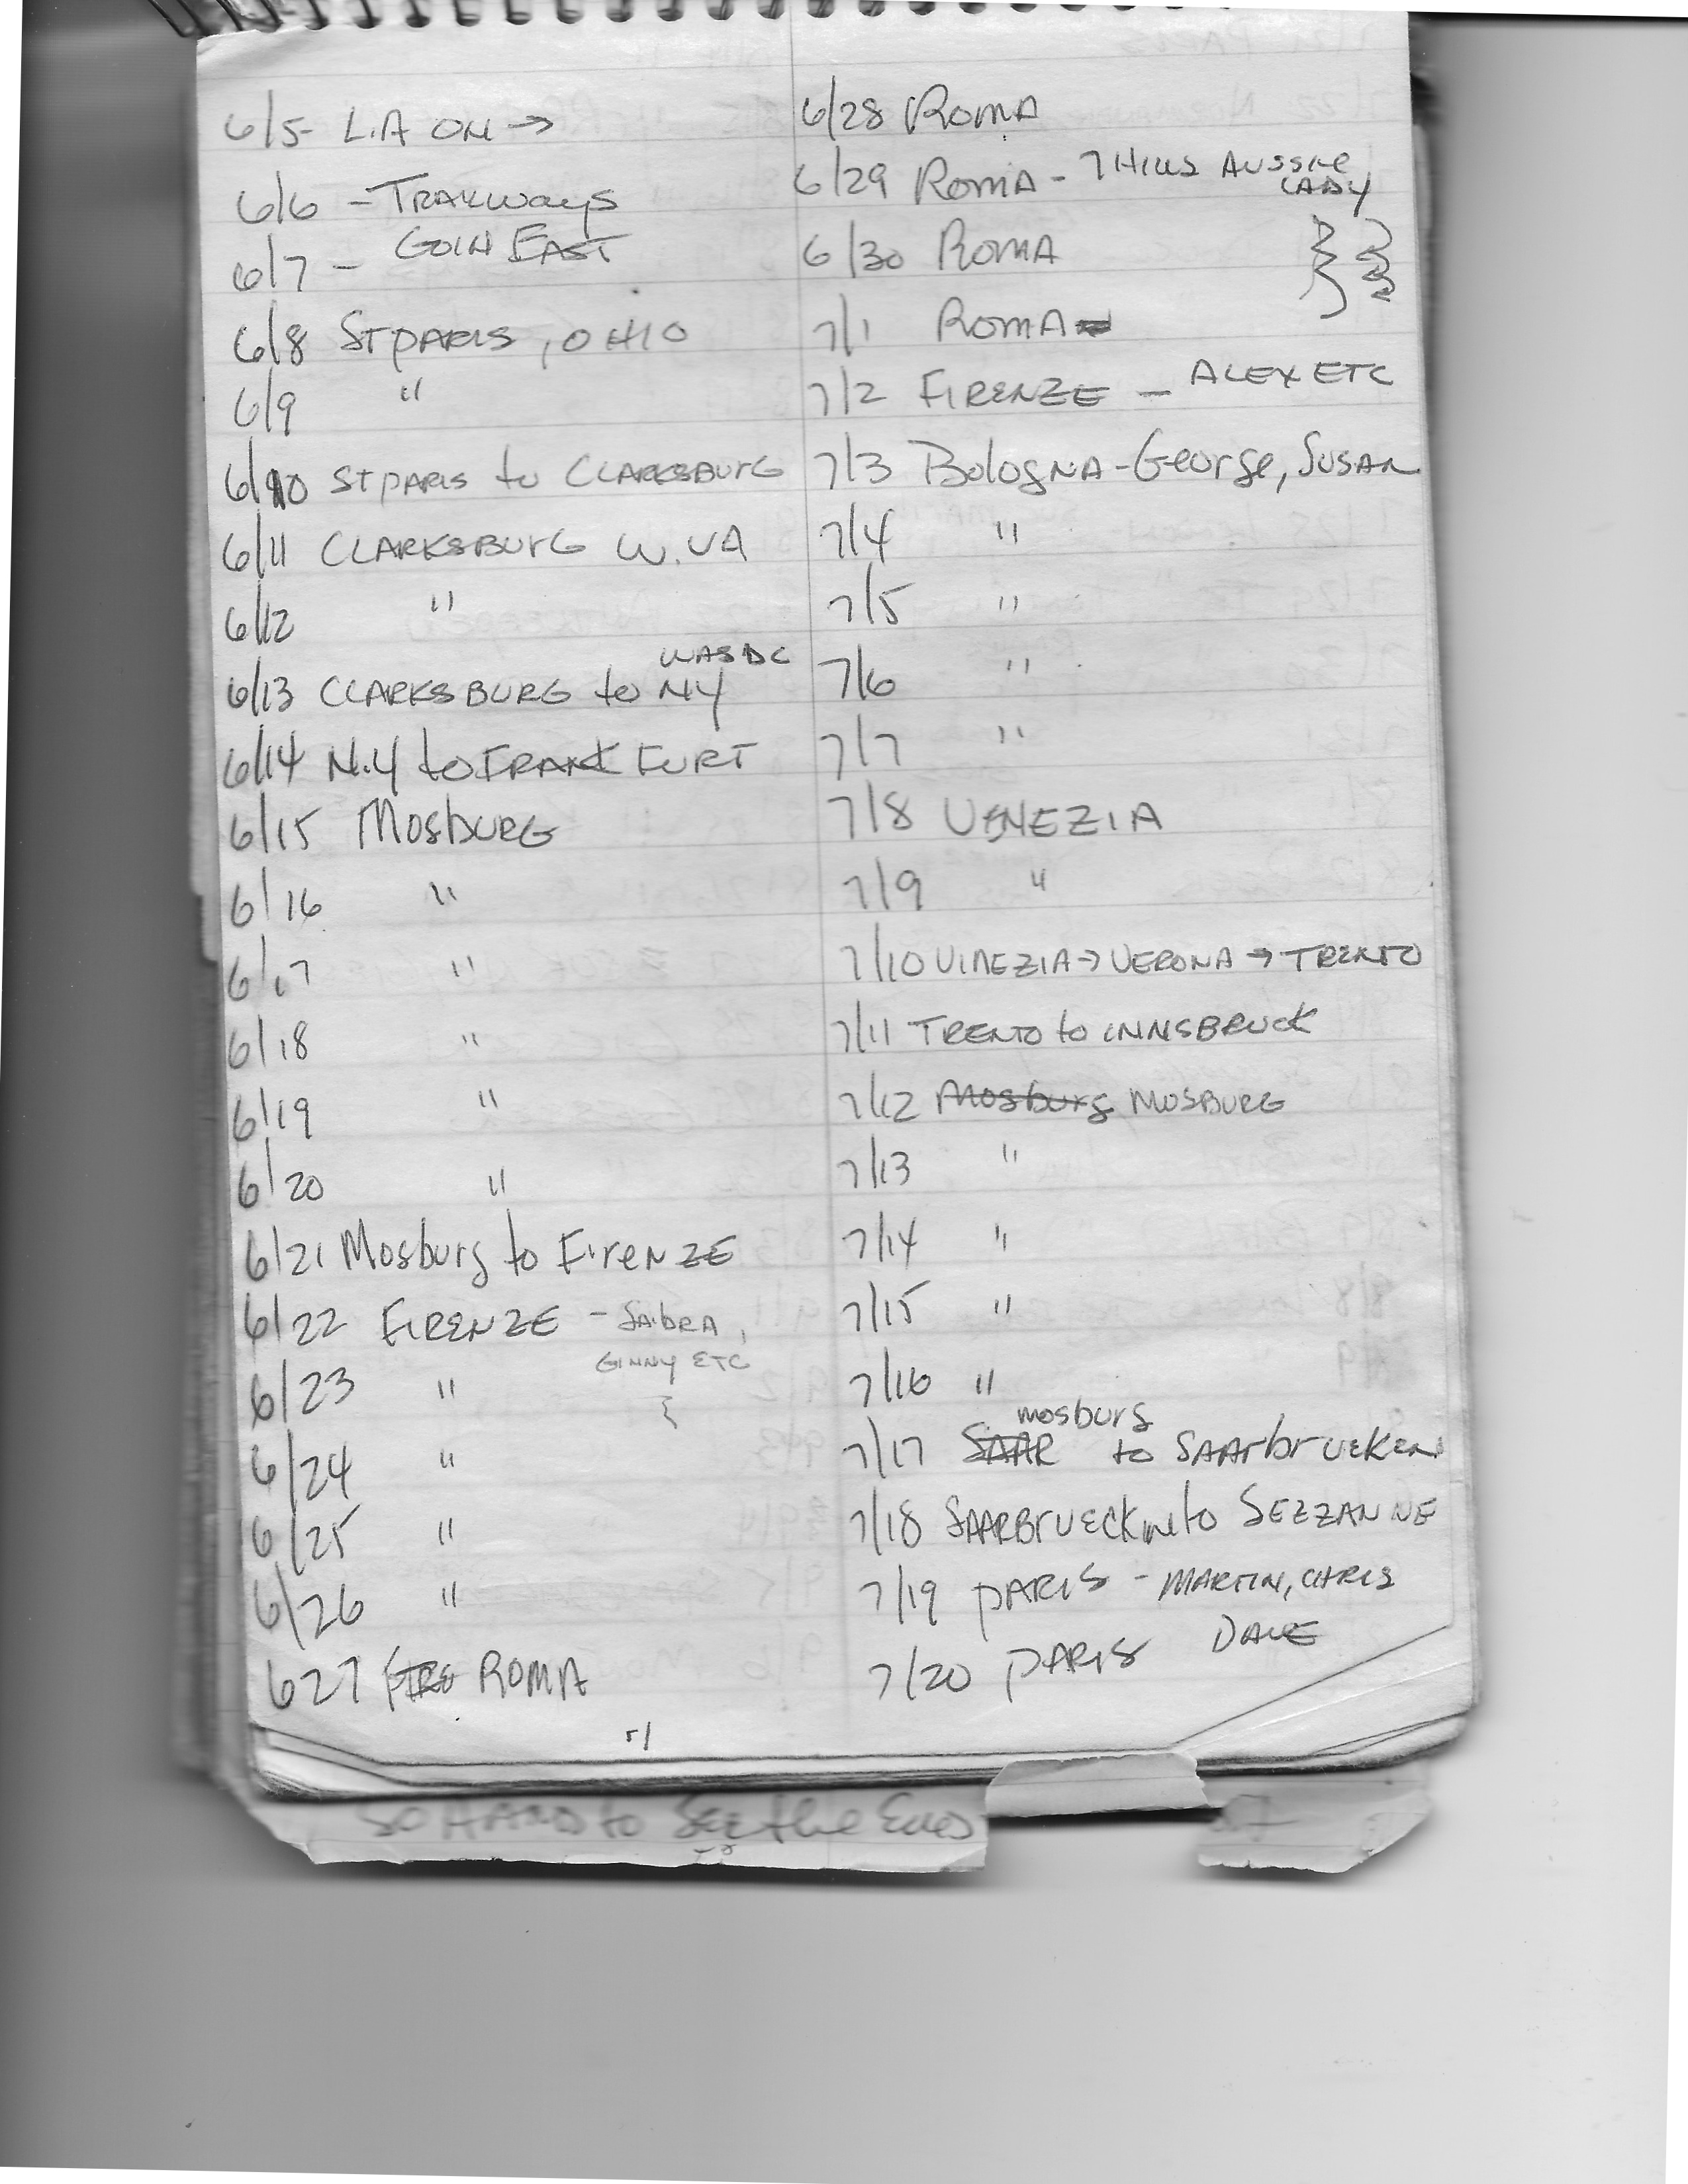 6/5- L.A ON →
6/6 - TRAILWAYS
6/7 - GOIN EAST
6/8 ST PARIS, OHIO
6/9 "
6/10 ST PARIS to CLARKSBURG
6/11 CLARKSBURG W.VA
6/12 "
WAS DC
6/13 CLARKSBURG to NY
6/14 N.Y to FRANKFURT
6/15 MosbURG
6/16 "
6/17 "
6/18 "
6/19 "
6/20 "
6/21 Mosburg to FirenZE
6/22 FIRENZE - SAbRA,
GINNY ETC
6/23 "
6/24 "
6/25 "
6/26 "
627 FIRE ROMA
6/28 ROMA
6/29 ROMA - 7 HILLS AUSSIE
LADY
6/30 ROMA
7/1 ROMA
7/2 FIRENZE - ALEX ETC
7/3 BologNA - George, SUSAN
7/4 "
7/5 "
7/6 "
7/7 "
7/8 VENEZIA
7/9 "
7/10 VINEZIA → VERONA → TRENTO
7/11 TRENTO to INNSBRUCK
7/12 Mosburg MOSBURG
7/13 "
7/14 "
7/15 "
7/16 "
mosburg
7/17 SAAR to SAArbrUEKEN
7/18 SAARBrUECKIN to SEZZANNE
7/19 PARIS - MARTIN, CHRIS
DAVE
7/20 PARIS
SO HARD to SEE the